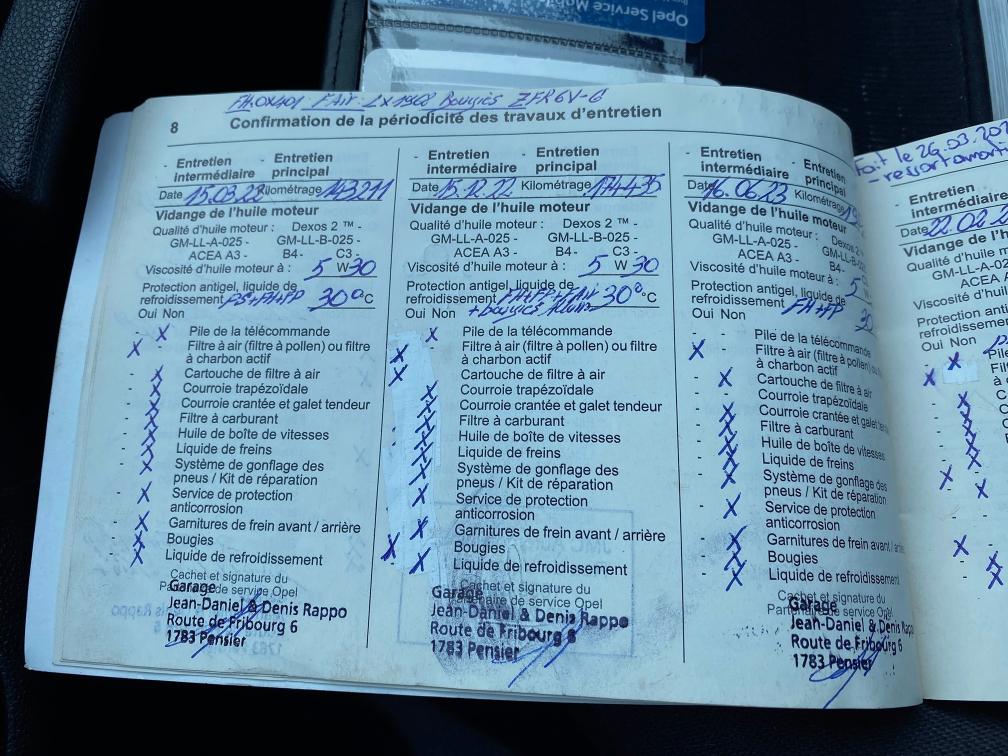 Opel Service Mobi
FH.OX401 FAir: LX1968 Bougies ZFR6V-G
8 Confirmation de la périodicité des travaux d'entretien
- Entretien intermédiaire - Entretien principal
Date 15.03.22 Kilométrage 143211
Vidange de l'huile moteur
Qualité d'huile moteur : Dexos 2 ™ -
GM-LL-A-025 - GM-LL-B-025 -
ACEA A3 - B4- C3 -
Viscosité d'huile moteur à : 5 W 30
Protection antigel, liquide de
refroidissement 30° °C
Oui Non
- X Pile de la télécommande
X - Filtre à air (filtre à pollen) ou filtre
à charbon actif
- X Cartouche de filtre à air
- X Courroie trapézoïdale
- X Courroie crantée et galet tendeur
- X Filtre à carburant
- X Huile de boîte de vitesses
- X Liquide de freins
- X Système de gonflage des
pneus / Kit de réparation
- X Service de protection
anticorrosion
- X Garnitures de frein avant / arrière
- X Bougies
- X Liquide de refroidissement
Cachet et signature du
Partenaire de service Opel
Garage
Jean-Daniel & Denis Rappo
Route de Fribourg 6
1783 Pensier
- Entretien intermédiaire - Entretien principal
Date 15.12.22 Kilométrage 174435
Vidange de l'huile moteur
Qualité d'huile moteur : Dexos 2 ™ -
GM-LL-A-025 - GM-LL-B-025 -
ACEA A3 - B4- C3 -
Viscosité d'huile moteur à : 5 W 30
Protection antigel, liquide de
refroidissement FH+FP+FAir 30° °C
+ Bougies
Oui Non
X Pile de la télécommande
X Filtre à air (filtre à pollen) ou filtre
à charbon actif
X Cartouche de filtre à air
X Courroie trapézoïdale
X Courroie crantée et galet tendeur
X Filtre à carburant
X Huile de boîte de vitesses
X Liquide de freins
X Système de gonflage des
pneus / Kit de réparation
X Service de protection
anticorrosion
X Garnitures de frein avant / arrière
X Bougies
X Liquide de refroidissement
Cachet et signature du
Partenaire de service Opel
Garage
Jean-Daniel & Denis Rappo
Route de Fribourg 6
1783 Pensier
- Entretien intermédiaire - Entretien principal
Date 16.06.23 Kilométrage
Vidange de l'huile moteur
Qualité d'huile moteur : Dexos 2
GM-LL-A-025 - GM-LL-B-02
ACEA A3 - B4-
Viscosité d'huile moteur à : 5
Protection antigel, liquide de
refroidissement FH+FP 30
Oui Non
- X Pile de la télécommande
X - Filtre à air (filtre à pollen) ou
à charbon actif
- X Cartouche de filtre à air
- X Courroie trapézoïdale
- X Courroie crantée et galet ten
- X Filtre à carburant
- X Huile de boîte de vitesses
- X Liquide de freins
- X Système de gonflage des
pneus / Kit de réparation
- X Service de protection
anticorrosion
- X Garnitures de frein avant / arriè
- X Bougies
- X Liquide de refroidissement
Cachet et signature du
Partenaire de service Opel
Garage
Jean-Daniel & Denis Rap
Route de Fribourg 6
1783 Pensier
Fait le 26.03.202
- ressort amorti
- Entretien
intermédiaire
Date 22.02.2
Vidange de l'h
Qualité d'huile
GM-LL-A-02
ACEA A
Viscosité d'huil
Protection anti
refroidissement
Oui Non